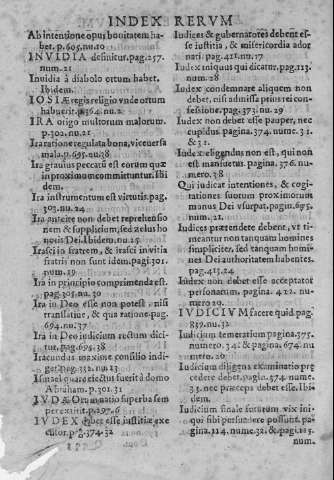 INDEX RERVM
Ab intentione opus bonitatem ha-
bet. p. 605. nu. 10
INVIDIA definitur. pag. 257.
num. 21
Inuidia à diabolo ortum habet.
Ibidem.
IOSIÆ regis religio vnde ortum
habuerit. p. 364. nu. 2.
IRA origo multorum malorum.
p. 302. nu. 21
Ira ratione regulata bona, vice versa
mala. p. 695. nu. 38
Ira grauius peccatū est eorum quæ
in proximo committuntur. Ibi-
dem.
Ira instrumentum est virtutis. pag.
303. nu. 24.
Ira anteire non debet reprehensio
nem & supplicium, sed zelus ho
noris Dei. Ibidem. nu. 25
Irasci in fratrem, & irasci in vitia
fratris non sunt idem. pagi. 301.
num. 19
Ira in principio comprimenda est.
pag. 305. nu. 30
Ira in Deo esse non potest nisi
translatiue, & qua ratione. pag.
694. nu. 37
Ira in Deo iudicium rectum dici-
tur. pag. 695. nu. 38
Iracundus maxime consilio indi-
get. pag. 332. nu. 23
Ismael quare eiectus fuerit à domo
Abraham. p. 302. 31
IVDÆOrum natio superba sem
per extitit. p. 297. 6
IVDEX debet esse iustitiæ exe
cutor. p. 374. 32
Iudices & gubernatores debent es-
se iustitia, & misericordia ador
nati. pag. 421. nu. 17
Iudex iniquus qui dicatur. pag. 113.
num. 28
Iudex condemnare aliquem non
debet, nisi admissi prius rei con-
fessione. pag. 373. nu. 29
Iudex non debet esse pauper, nec
cupidus. pagina. 374. nume. 31.
& 32.
Iudex eligendus non est, qui non
est mansuetus. pagina. 376. nu-
mero. 38
Qui iudicat intentiones, & cogi-
tationes suorum proximorum
munus Dei vsurpat. pagin. 695.
num. 21.
Iudices prætendere debent, vt ti-
meantur non tanquam homines
simpliciter, sed tanquam homi-
nes Dei authoritatem habentes.
pag. 413. 24
Iudex non debet esse acceptator
personarum. pagina. 422. nu-
mero 20.
IVDICIVM facere quid. pag.
859. nu. 12
Iudicium temerarium pagina. 375.
numero. 34. & pagina. 674. nu
mero. 20
Iudicium diligens examinatio præ
cedere debet. pagin. 374. nume.
33. nec præceps debet esse. Ibi-
dem.
Iudicium finale futurum vix ini-
qui sibi persuadere possunt. pa-
gina. 114. nume. 32. & pagi. 115.
num.